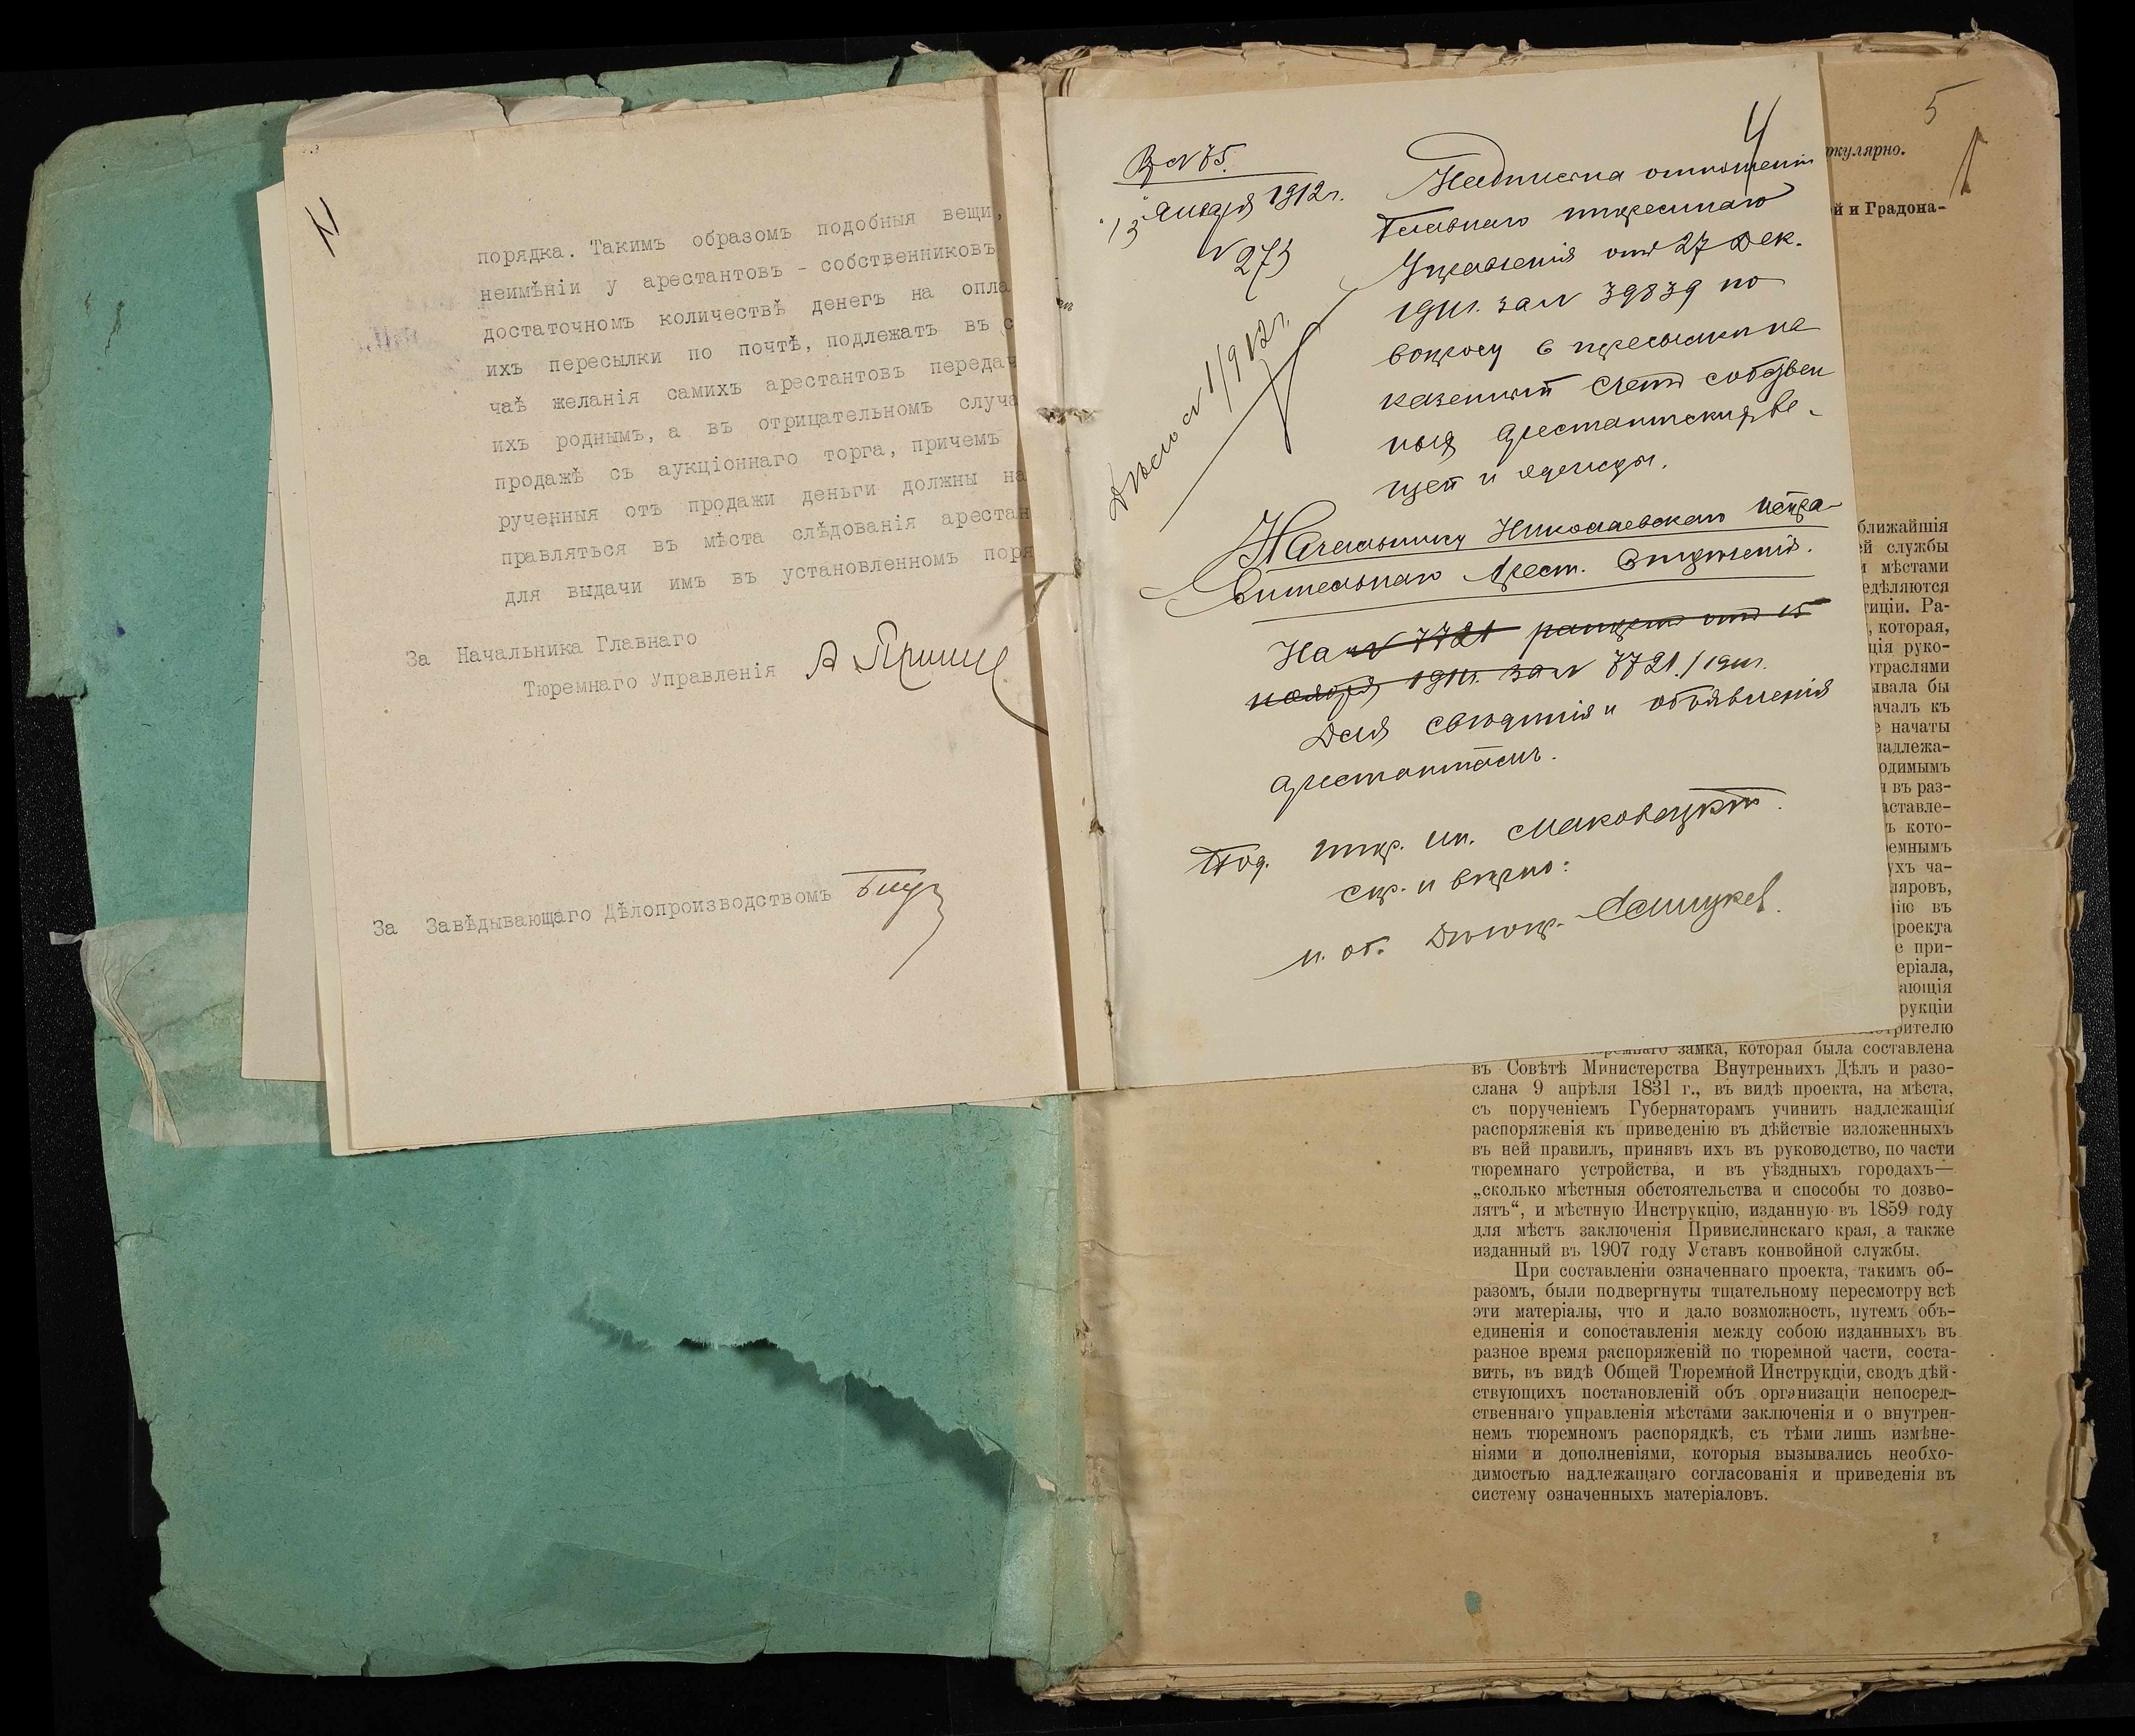 порядка. Таким​ъ образомъ подобныя вещи,
неимѣніи у арестантовъ - собственниковъ
достаточномъ количествѣ денегъ на опла
ихъ пересылки по почтѣ, подлежатъ въ с
чаѣ желанія самихъ арестантовъ передач
ихъ роднымъ, а въ отрицательномъ случа
продажѣ съ аукціоннаго торга, причемъ
рученныя отъ продажи деньги должны на
правляться въ мѣста слѣдованія арестан
для выдачи имъ въ установленномъ поря
За Начальника Главнаго
Тюремнаго Управленія
За Завѣдывающаго Дѣлопроизводствомъ
4
Вх № 75.
13 Января 1912 г.
№ 273
Дѣло № 1/912 г.
Надпись на отношеніи
Главнаго тюремнаго
Управленія отъ 27 Дек.
1911 г. за № 39839 по
вопросу о пересылки на
казенный счетъ собствен
ныхъ арестантскихъ ве-
щей и одежды.
Начальнику Николаевскаго Испра-
вительнаго Арест. Отдѣленія.
На № 7721 рапортъ отъ 15
ноября 1911 г. за № 7721/1911 г.
Для свѣдѣнія и объявленія
арестантамъ.
Под. тюр. ин. Маковецкій.
скр. и вѣрно:
и. об. Дѣлопр.
5
ркулярно.
й и Градона-
ближайшія
ей службы
и мѣстами
едѣляются
тиціи. Ра-
, которая,
ція руко-
отраслями
ывала бы
ачалъ къ
е начаты
надлежа-
одимымъ
я въ раз-
аставле-
ъ кото-
емнымъ
ухъ ча-
ляровъ,
нію въ
роекта
е при-
еріала,
ающія
рукціи
трителю
ремнаго замка, которая была составлена
въ Совѣтѣ Министерства Внутреннихъ Дѣлъ и разо-
слана 9 апрѣля 1831 г., въ видѣ проекта, на мѣста,
съ порученіемъ Губернаторамъ учинить надлежащія
распоряженія къ приведенію въ дѣйствіе изложенныхъ
въ ней правилъ, принявъ ихъ въ руководство, по части
тюремнаго устройства, и въ уѣздныхъ городахъ—
„сколько мѣстныя обстоятельства и способы то дозво-
лятъ“, и мѣстную Инструкцію, изданную въ 1859 году
для мѣстъ заключенія Привислинскаго края, а также
изданный въ 1907 году Уставъ конвойной службы.
При составленіи означеннаго проекта, такимъ об-
разомъ, были подвергнуты тщательному пересмотру всѣ
эти матеріалы, что и дало возможность, путемъ объ-
единенія и сопоставленія между собою изданныхъ въ
разное время распоряженій по тюремной части, соста-
вить, въ видѣ Общей Тюремной Инструкціи, сводъ дѣй-
ствующихъ постановленій объ организаціи непосред-
ственнаго управленія мѣстами заключенія и о внутрен-
немъ тюремномъ распорядкѣ, съ тѣми лишь измѣне-
ніями и дополненіями, которыя вызывались необхо-
димостью надлежащаго согласованія и приведенія въ
систему означенныхъ матеріаловъ.